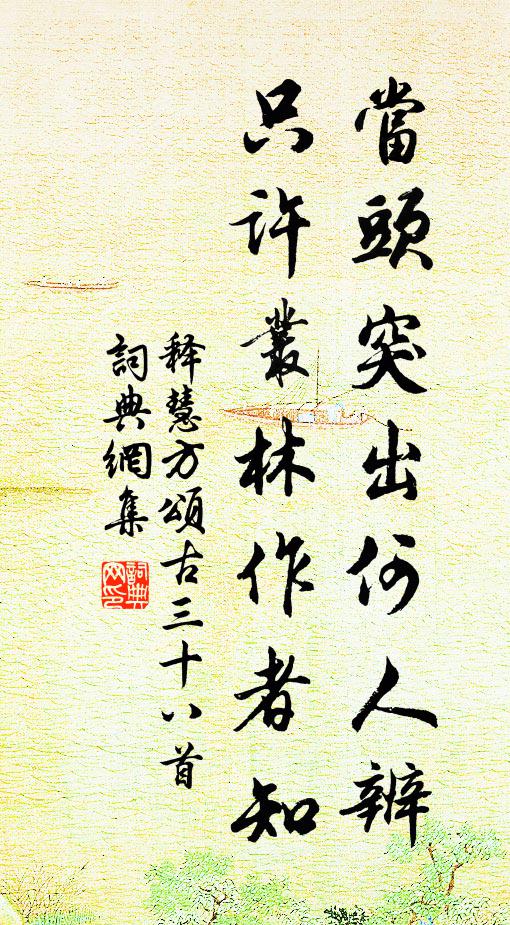 當頭突出何人辨
只許叢林作者知
释慧方頌古三十八首
詞典網集
詞典
网印